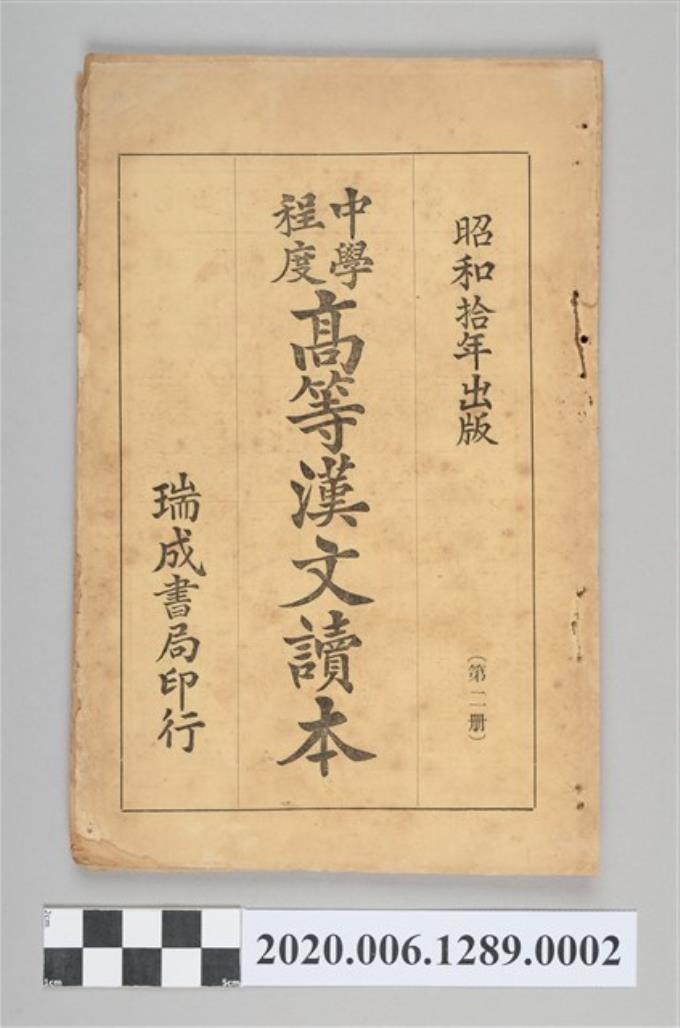 昭和拾年出版
（第二册）
中學
程度
高等漢文讀本
瑞成書局印行
2020.006.1289.0002
1cm
5cm